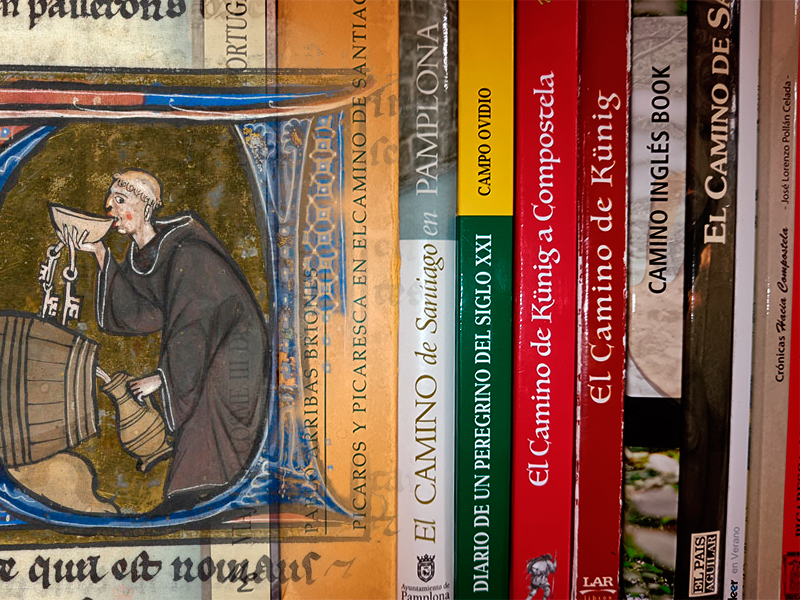 PORTUG
PABLO ARRIBAS BRIONES
PICAROS Y PICARESCA EN EL CAMINO DE SANTIAGO
El CAMINO de Santiago en PAMPLONA
Ayuntamiento de
Pamplona
CAMPO OVIDIO
DIARIO DE UN PEREGRINO DEL SIGLO XXI
El Camino de Künig a Compostela
El Camino de Künig
LAR
libros
CAMINO INGLÉS BOOK
EL CAMINO DE SA
EL PAIS
AGUILAR
eer en Verano
Crónicas Hacia Compostela
- José Lorenzo Pollán Celada -
e qui est